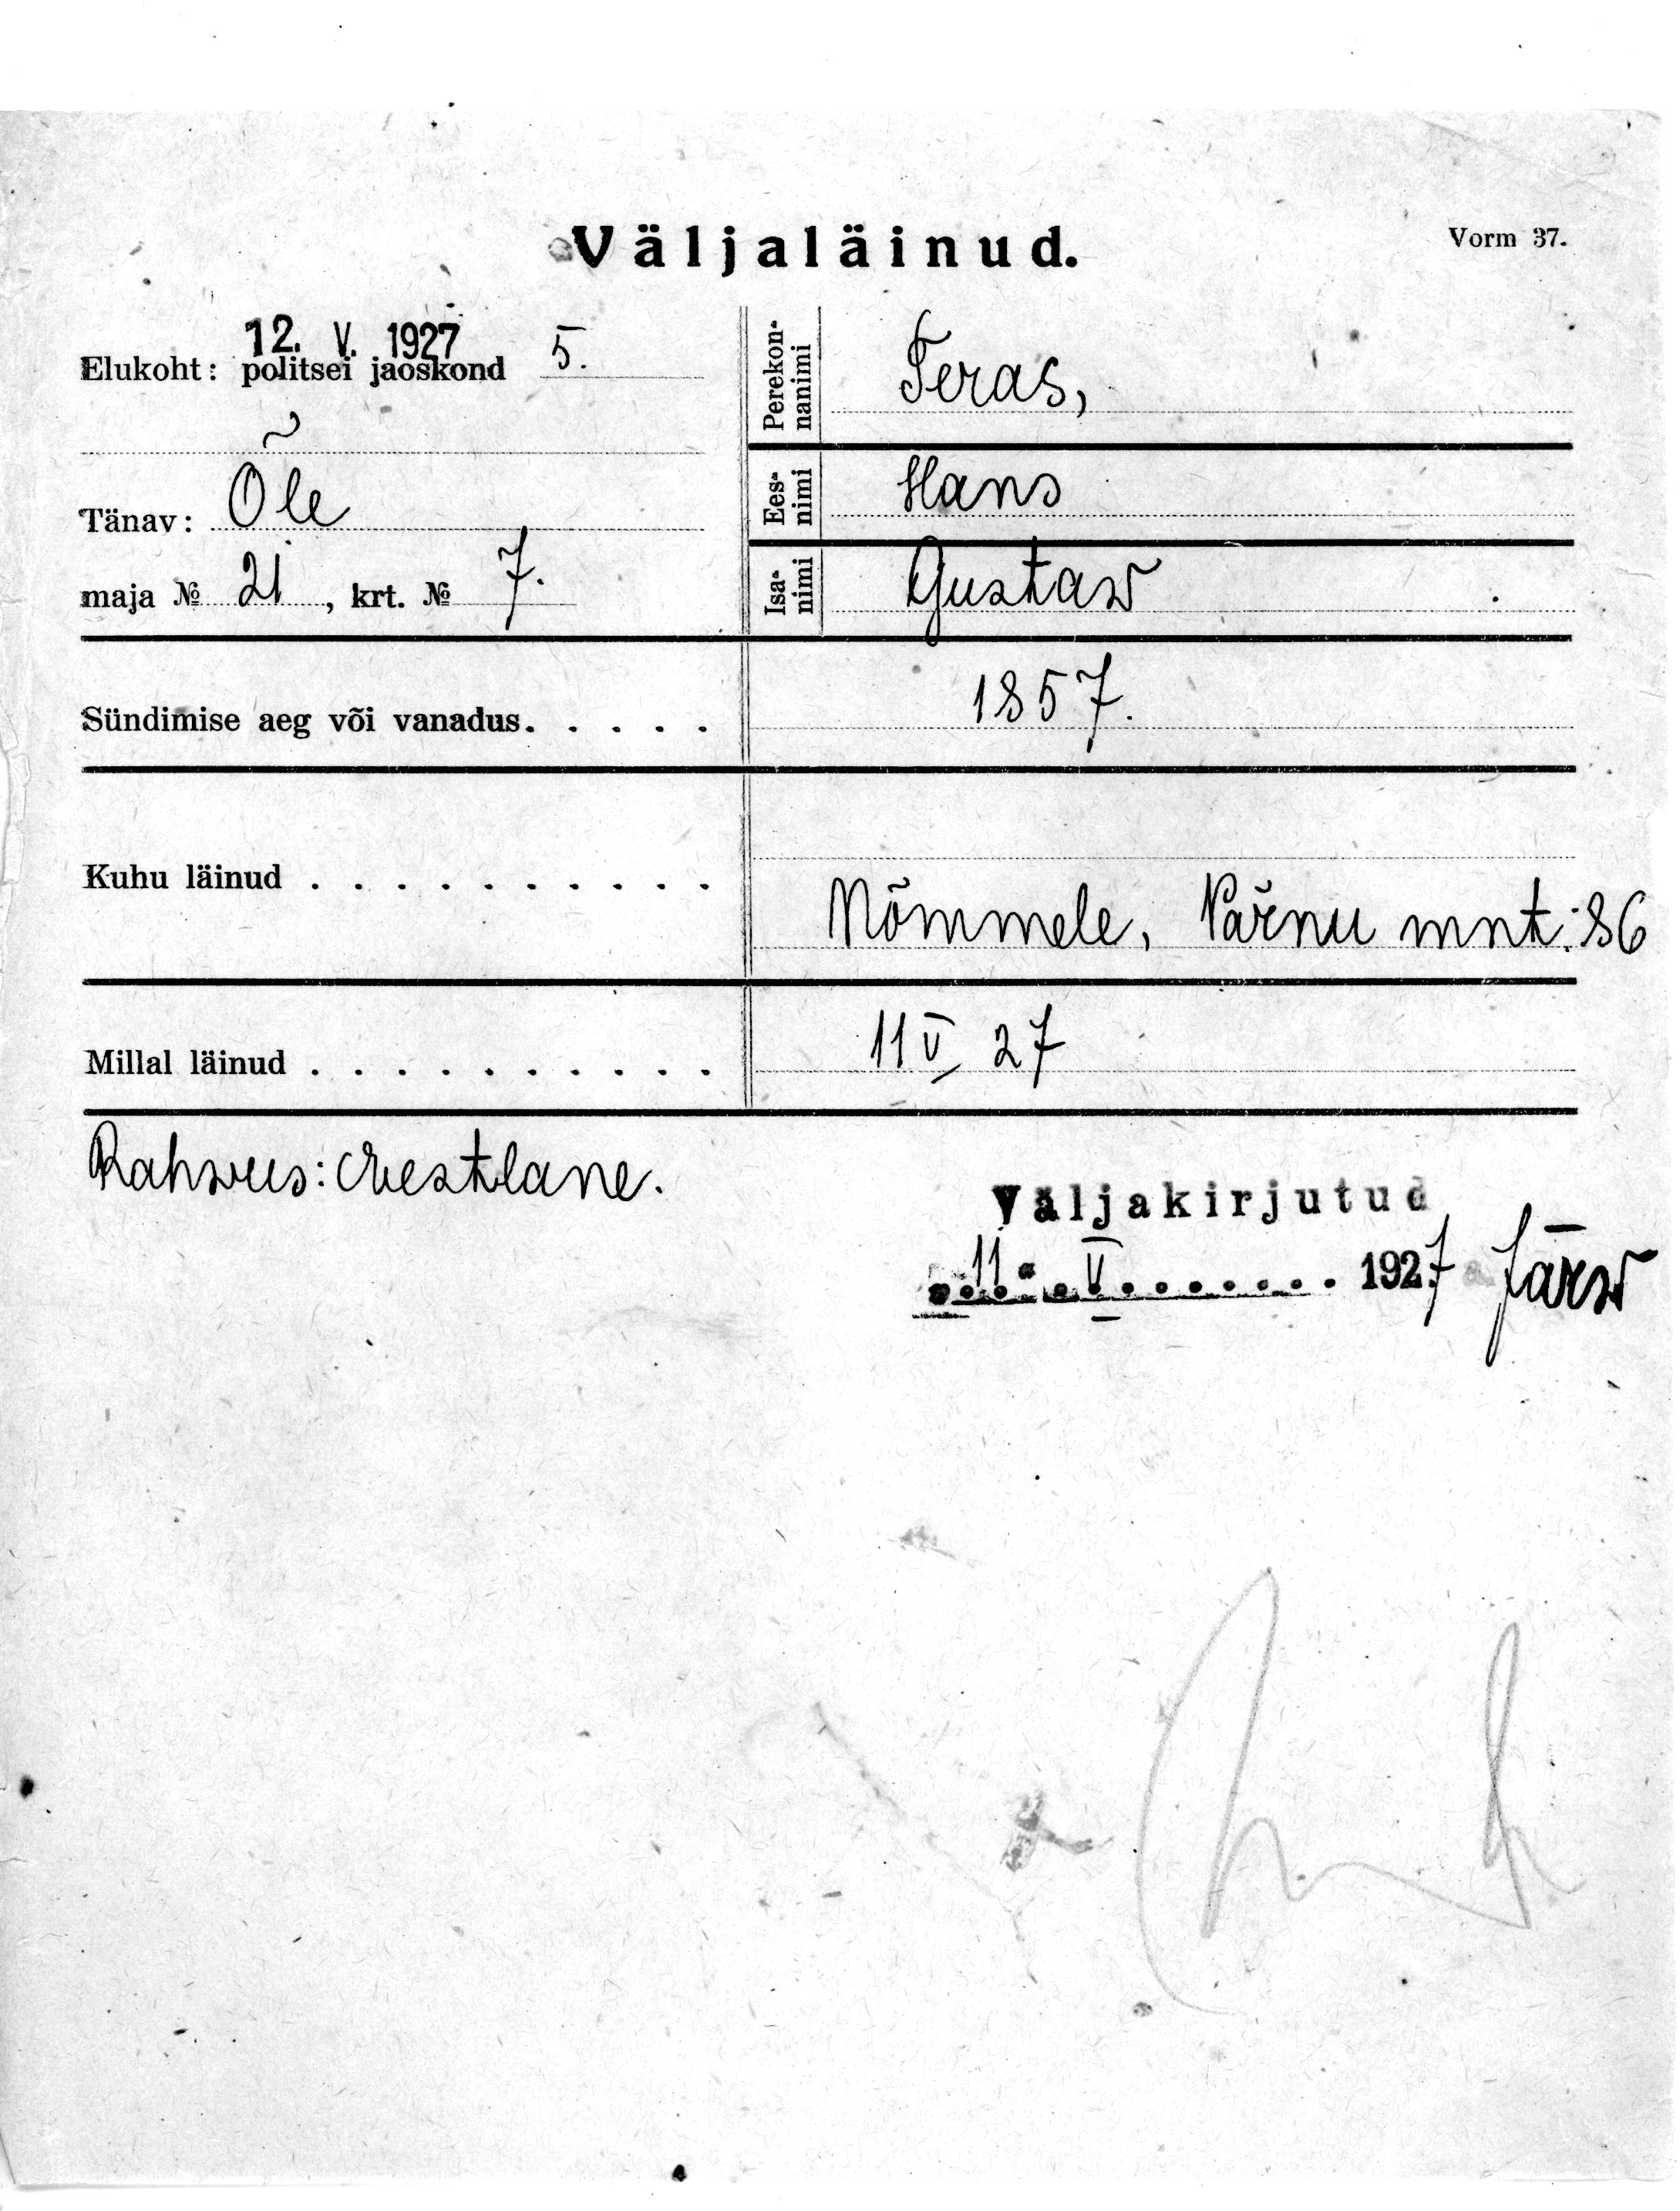 Väljaläinud.
Vorm 37.
12. V. 1927
Elukoht: politsei jaoskond 5.
Tänav: Õle
maja № 21, krt. № 7.
Perekonnanimi Teras,
Eesnimi Hans
Isanimi Gustaw
Sündimise aeg või vanadus. . . . . 1857.
Kuhu läinud . . . . . . . . . . Nõmmele, Pärnu mnt: 86
Millal läinud . . . . . . . . . . 11 V 27
Rahwus: eestlane.
Väljakirjutud
11. V. 1927 Järw